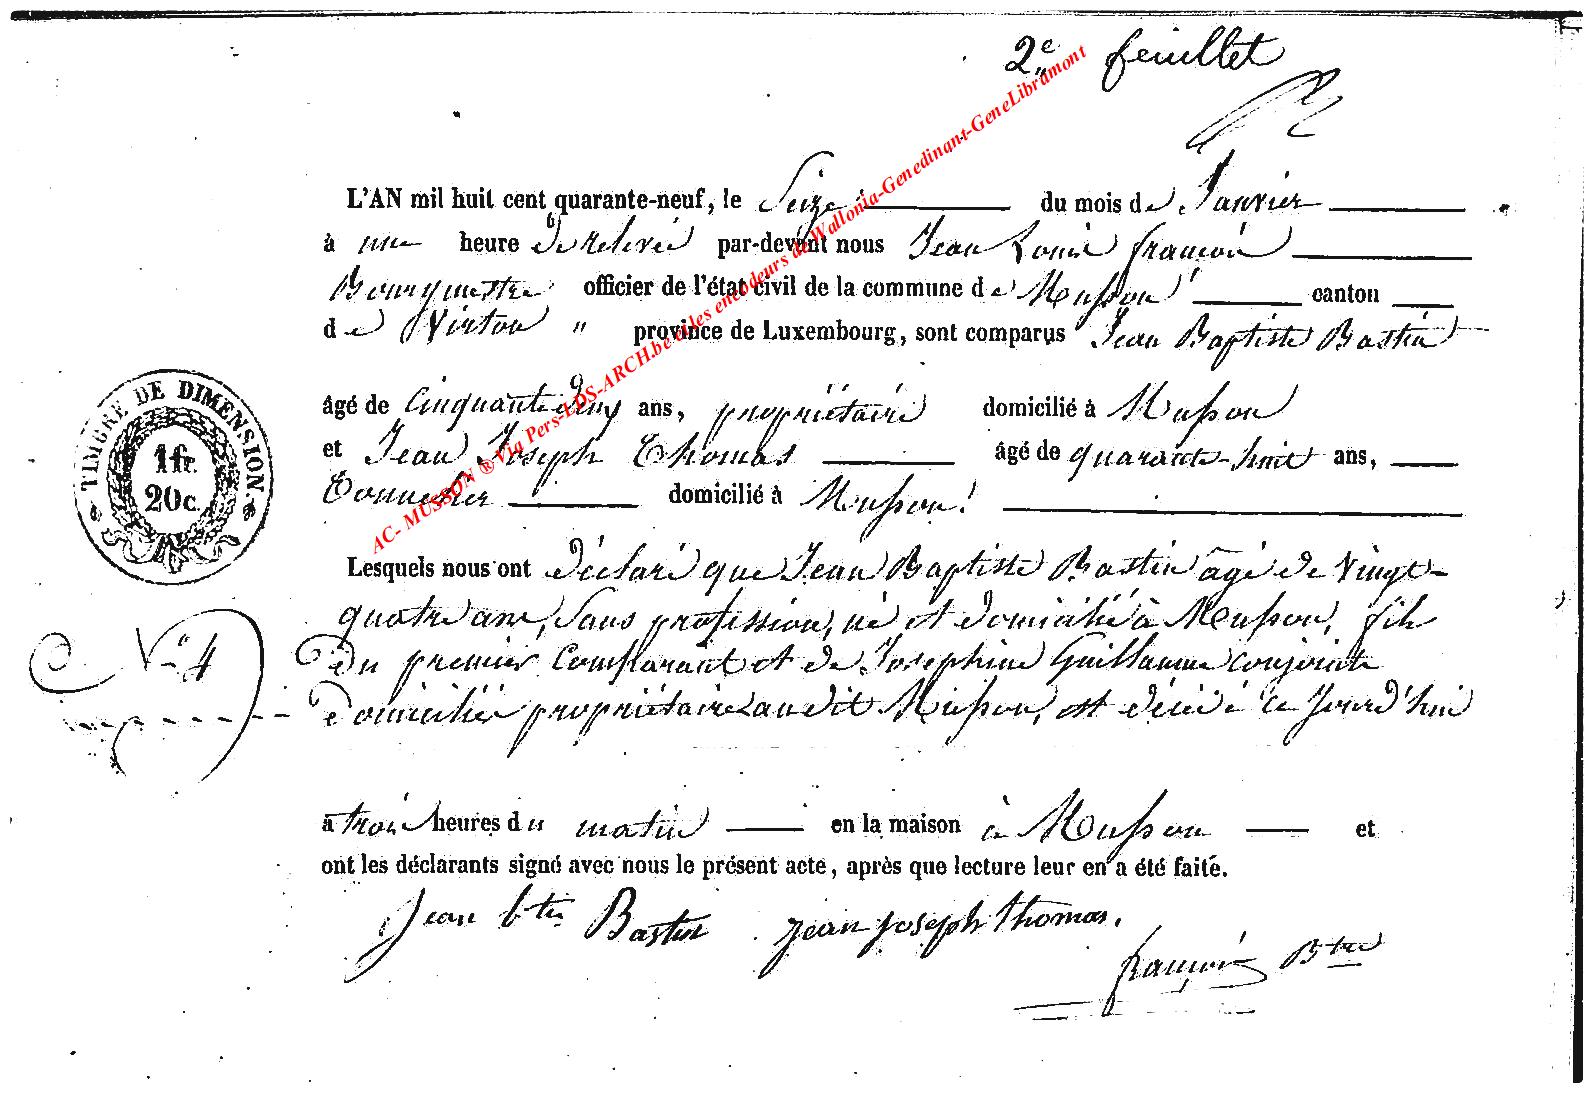 2e feuillet
L'AN mil huit cent quarante-neuf, le Seize du mois de Janvier
à une heure de relevée par-devant nous Jean Louis françois
Bourgmestre officier de l'état civil de la commune de Musson canton
de Virton " province de Luxembourg, sont comparus Jean Baptiste Bastin
âgé de Cinquante deux ans, propriétaire domicilié à Musson
et Jean Joseph Thomas âgé de quarante-huit ans,
Tonnelier domicilié à Musson.
Lesquels nous ont déclaré que Jean Baptiste Bastin âgé de Vingt-
quatre ans, Sans profession, né et domicilié à Musson, fils
du premier Comparant et de Josephine Guillaume conjoints
domiciliés propriétaires audit Musson, est décédé ce Jourd'hui
à trois heures du matin en la maison à Musson et
ont les déclarants signé avec nous le présent acte, après que lecture leur en a été faite.
Jean bte Bastin jean joseph thomas.
françois Btre
TIMBRE DE DIMENSION.
1fr.
20c.
No 4
AC- MUSSON ® Via Pers-LDS-ARCH.be et les encodeurs de Wallonia-Genedinant-GeneLibramont